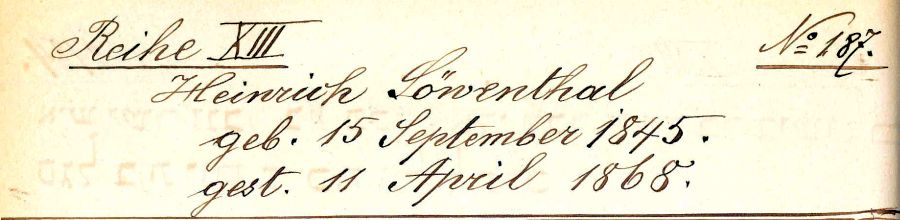 Reihe XIII No 187.
Heinrich Löwenthal
geb. 15 September 1845.
gest. 11 April 1868.